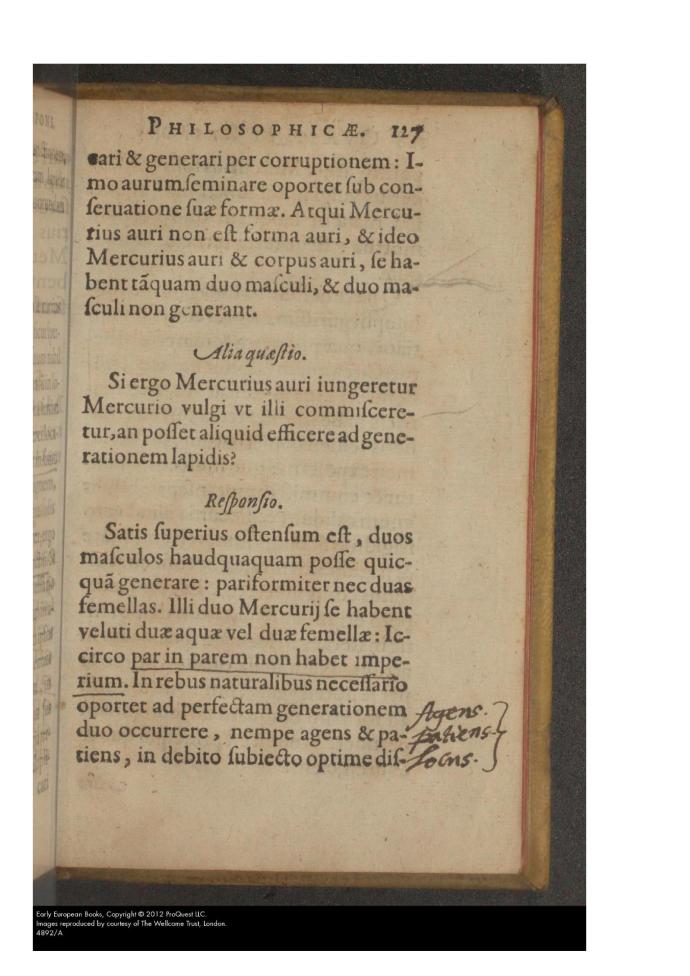 PHILOSOPHICÆ. 127
cari & generari per corruptionem: I-
mo aurum ſeminare oportet ſub con-
ſeruatione ſuæ formæ. Atqui Mercu-
rius auri non eſt forma auri, & ideo
Mercurius auri & corpus auri, ſe ha-
bent tãquam duo maſculi, & duo ma-
ſculi non generant.
Alia quæſtio.
Si ergo Mercurius auri iungeretur
Mercurio vulgi vt illi commiſcere-
tur, an poſſet aliquid efficere ad gene-
rationem lapidis?
Reſponſio.
Satis ſuperius oſtenſum eſt, duos
maſculos haudquaquam poſſe quic-
quã generare: pariformiter nec duas
femellas. Illi duo Mercurij ſe habent
veluti duæ aquæ vel duæ femellæ: Ic-
circo par in parem non habet impe-
rium. In rebus naturalibus neceſſario
oportet ad perfectam generationem Agens.
duo occurrere, nempe agens & pa- patiens.
tiens, in debito ſubiecto optime diſ- Locus.
Early European Books, Copyright © 2012 ProQuest LLC.
Images reproduced by courtesy of The Wellcome Trust, London.
4892/A